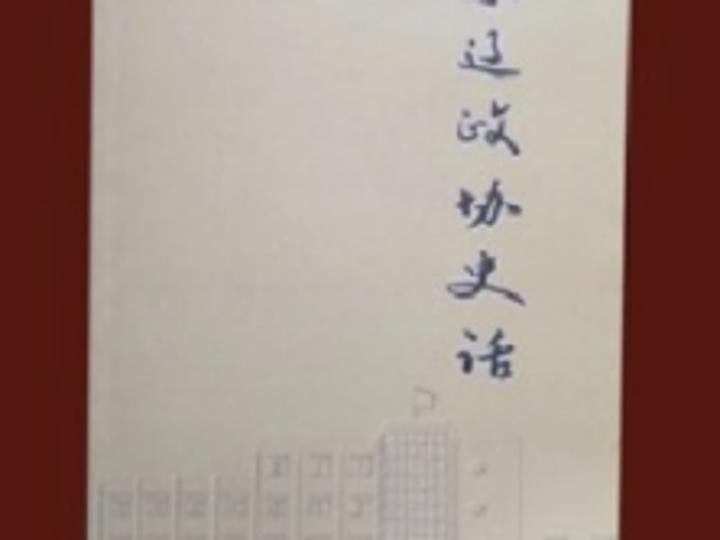 辽政协史话